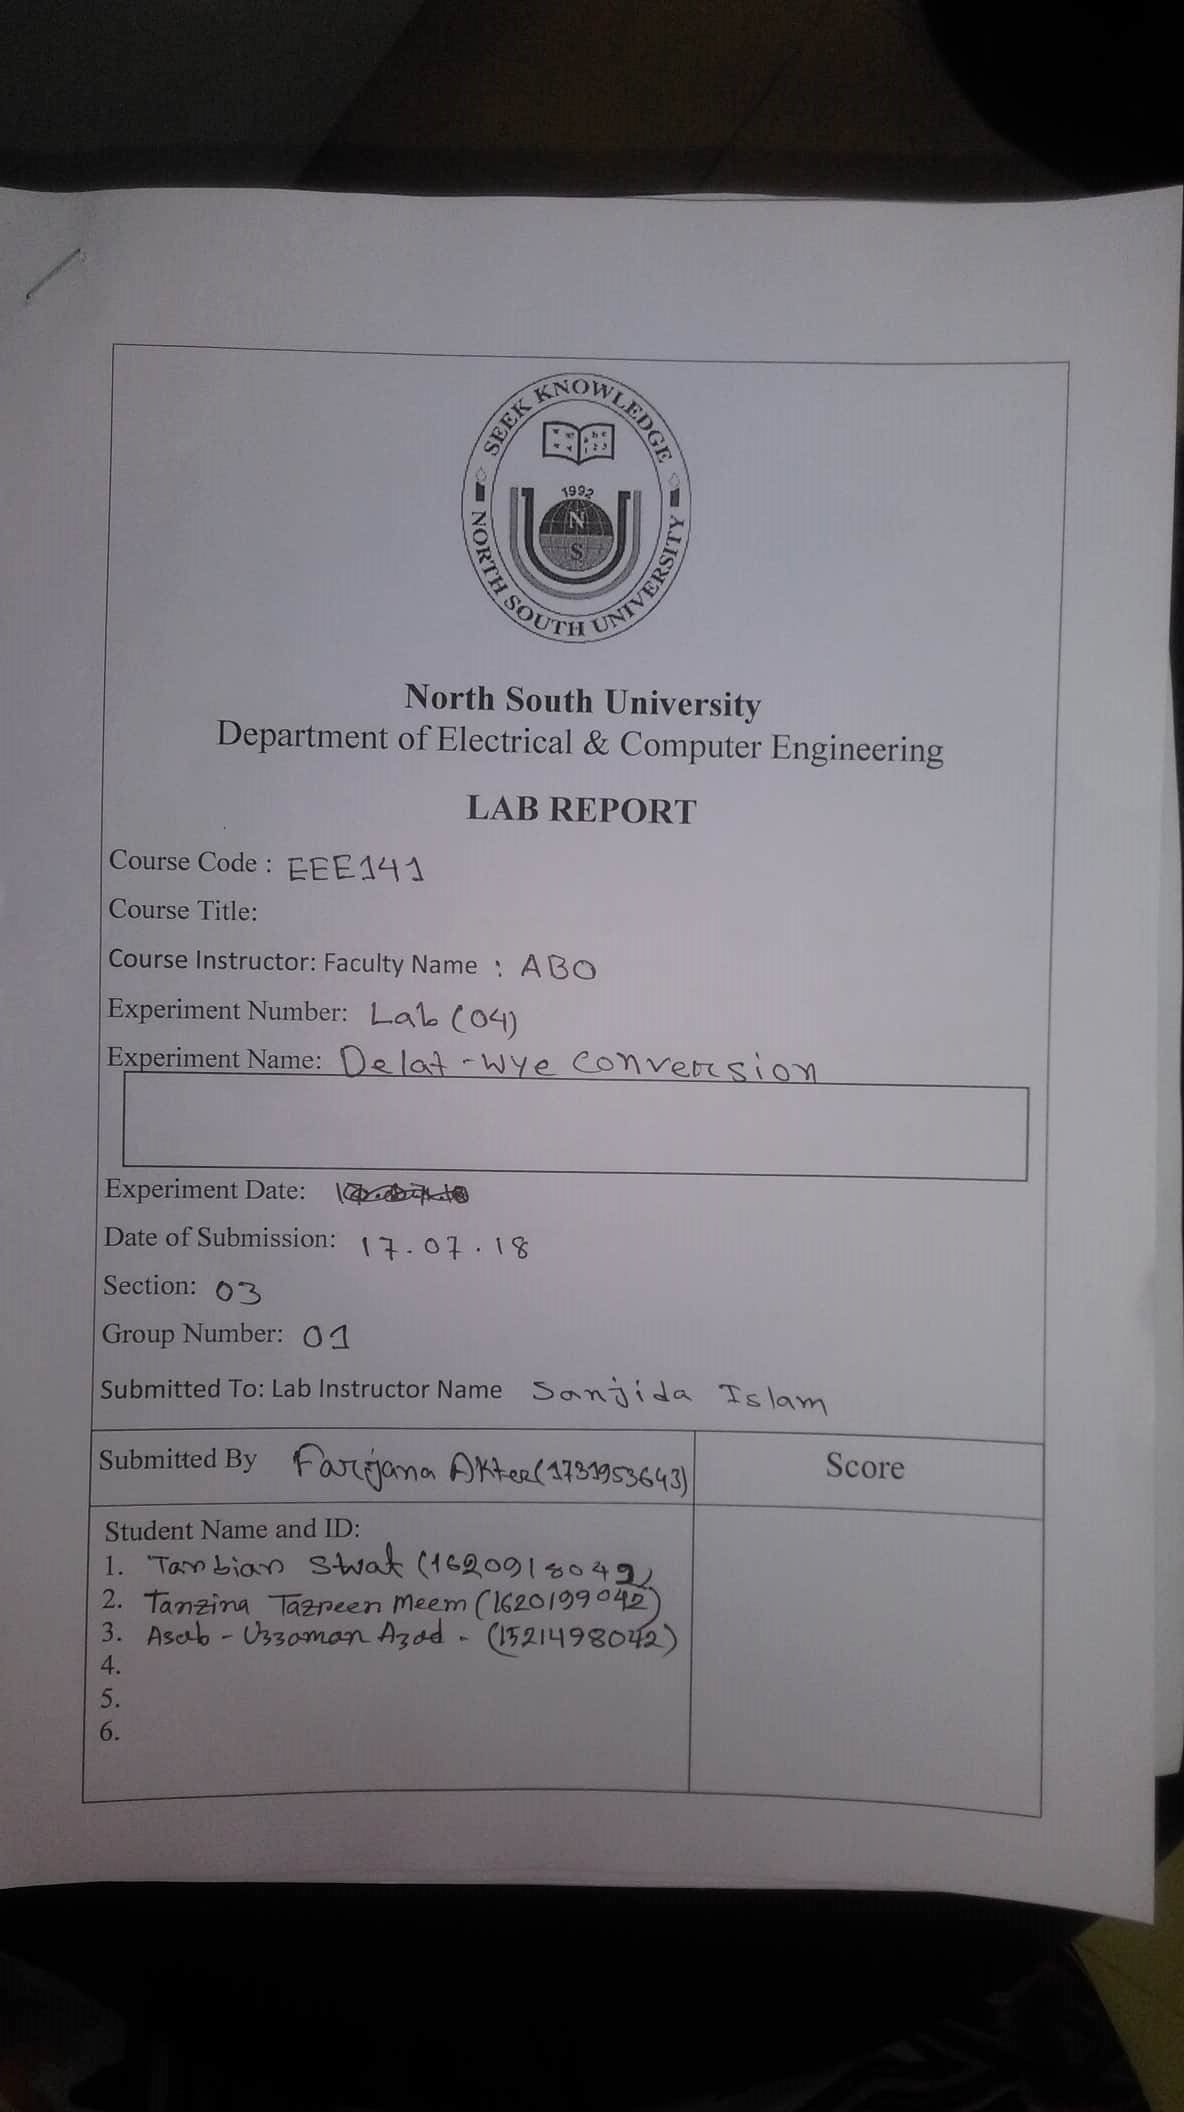 SEEK KNOWLEDGE
1992
N
S
NORTH SOUTH UNIVERSITY
North South University
Department of Electrical & Computer Engineering
LAB REPORT
Course Code : EEE141
Course Title:
Course Instructor: Faculty Name : ABO
Experiment Number: Lab (04)
Experiment Name: Delat-Wye Conversion
Experiment Date:
Date of Submission: 17.07.18
Section: 03
Group Number: 01
Submitted To: Lab Instructor Name Sanjida Islam
Submitted By Farijana Akter (1731953643)
Score
Student Name and ID:
1. Tanbian (1620918042)
2. Tanzina Tazreen Meem (1620199042)
3. Asab-Uzzaman Azad - (1521498042)
4.
5.
6.